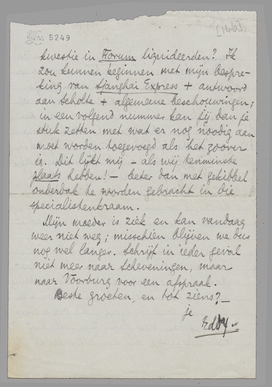 5249
kwestie in Forum liquideerden? Ik
zou kunnen beginnen met mijn bespre-
king van Shanghai Express + antwoord
aan Scholte + algemeene beschouwingen;
in een volgend nummer kan jij dan je
stuk zetten met wat er nog noodig aan
moet worden toegevoegd als het zoover
is. Dit lijkt mij – als wij tenminste
plaats hebben! – beter dan met gekibbel
onderdak te worden gebracht in die
specialistenkraam.
Mijn moeder is ziek en kan vandaag
weer niet weg; misschien blijven we dus
nog wel langer. Schrijf in ieder geval
niet meer naar Scheveningen, maar
naar Voorburg voor een afspraak.
Beste groeten, en tot ziens?
je